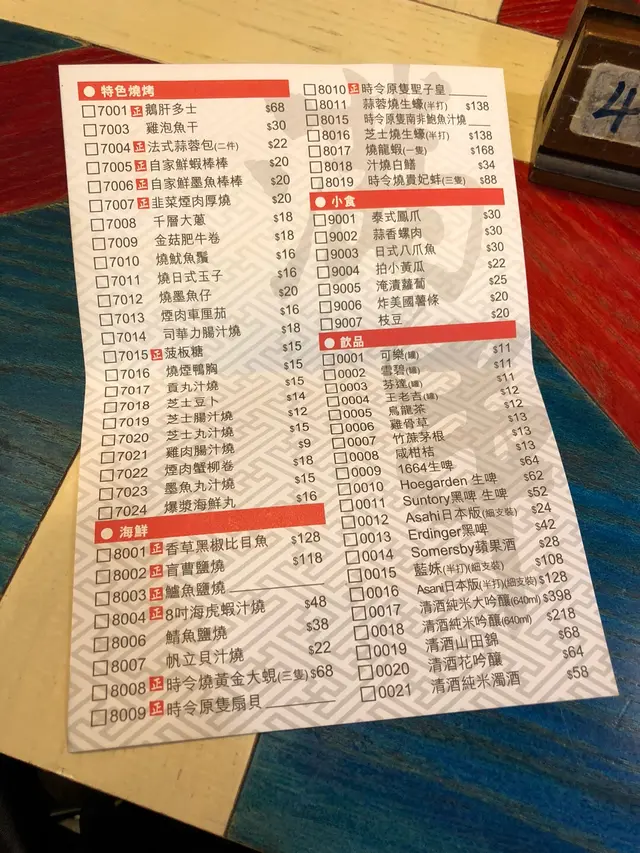 特色燒烤
7001 正 鵝肝多士 $68
7003 雞泡魚干 $30
7004 正 法式蒜蓉包(二件) $22
7005 正 自家鮮蝦棒棒 $20
7006 正 自家鮮墨魚棒棒 $20
7007 正 韭菜煙肉厚燒 $20
7008 千層大蔥 $18
7009 金菇肥牛卷 $18
7010 燒魷魚鬚 $16
7011 燒日式玉子 $16
7012 燒墨魚仔 $20
7013 煙肉車厘茄 $16
7014 司華力腸汁燒 $18
7015 正 菠板糖 $15
7016 燒煙鴨胸 $15
7017 貢丸汁燒 $15
7018 芝士豆卜 $14
7019 芝士腸汁燒 $12
7020 芝士丸汁燒 $15
7021 雞肉腸汁燒 $9
7022 煙肉蟹柳卷 $18
7023 墨魚丸汁燒 $15
7024 爆漿海鮮丸 $16
海鮮
8001 正 香草黑椒比目魚 $128
8002 正 盲曹鹽燒 $118
8003 正 鱸魚鹽燒
8004 正 8吋海虎蝦汁燒 $48
8006 鯖魚鹽燒 $38
8007 帆立貝汁燒 $22
8008 正 時令燒黃金大蜆(三隻) $68
8009 正 時令原隻扇貝
8010 正 時令原隻聖子皇
8011 蒜蓉燒生蠔(半打) $138
8015 時令原隻南非鮑魚汁燒
8016 芝士燒生蠔(半打) $138
8017 燒龍蝦(一隻) $168
8018 汁燒白鱔 $34
8019 時令燒貴妃蚌(三隻) $88
小食
9001 泰式鳳爪 $30
9002 蒜香螺肉 $30
9003 日式八爪魚 $30
9004 拍小黃瓜 $22
9005 淹漬蘿蔔 $25
9006 炸美國薯條 $20
9007 枝豆 $20
飲品
0001 可樂(罐) $11
0002 雪碧(罐) $11
0003 芬達(罐) $11
0004 王老吉(罐) $12
0005 烏龍茶 $12
0006 雞骨草 $13
0007 竹蔗茅根 $13
0008 咸柑桔 $13
0009 1664生啤 $64
0010 Hoegarden 生啤 $62
0011 Suntory黑啤 生啤 $52
0012 Asahi日本版(細支裝) $24
0013 Erdinger黑啤 $42
0014 Somersby蘋果酒 $28
0015 藍妹(半打)(細支裝) $108
0016 Asani日本版(半打)(細支裝) $128
0017 清酒純米大吟釀(640ml) $398
0018 清酒純米吟釀(640ml) $218
0019 清酒山田錦 $68
0020 清酒花吟釀 $64
0021 清酒純米濁酒 $58
4